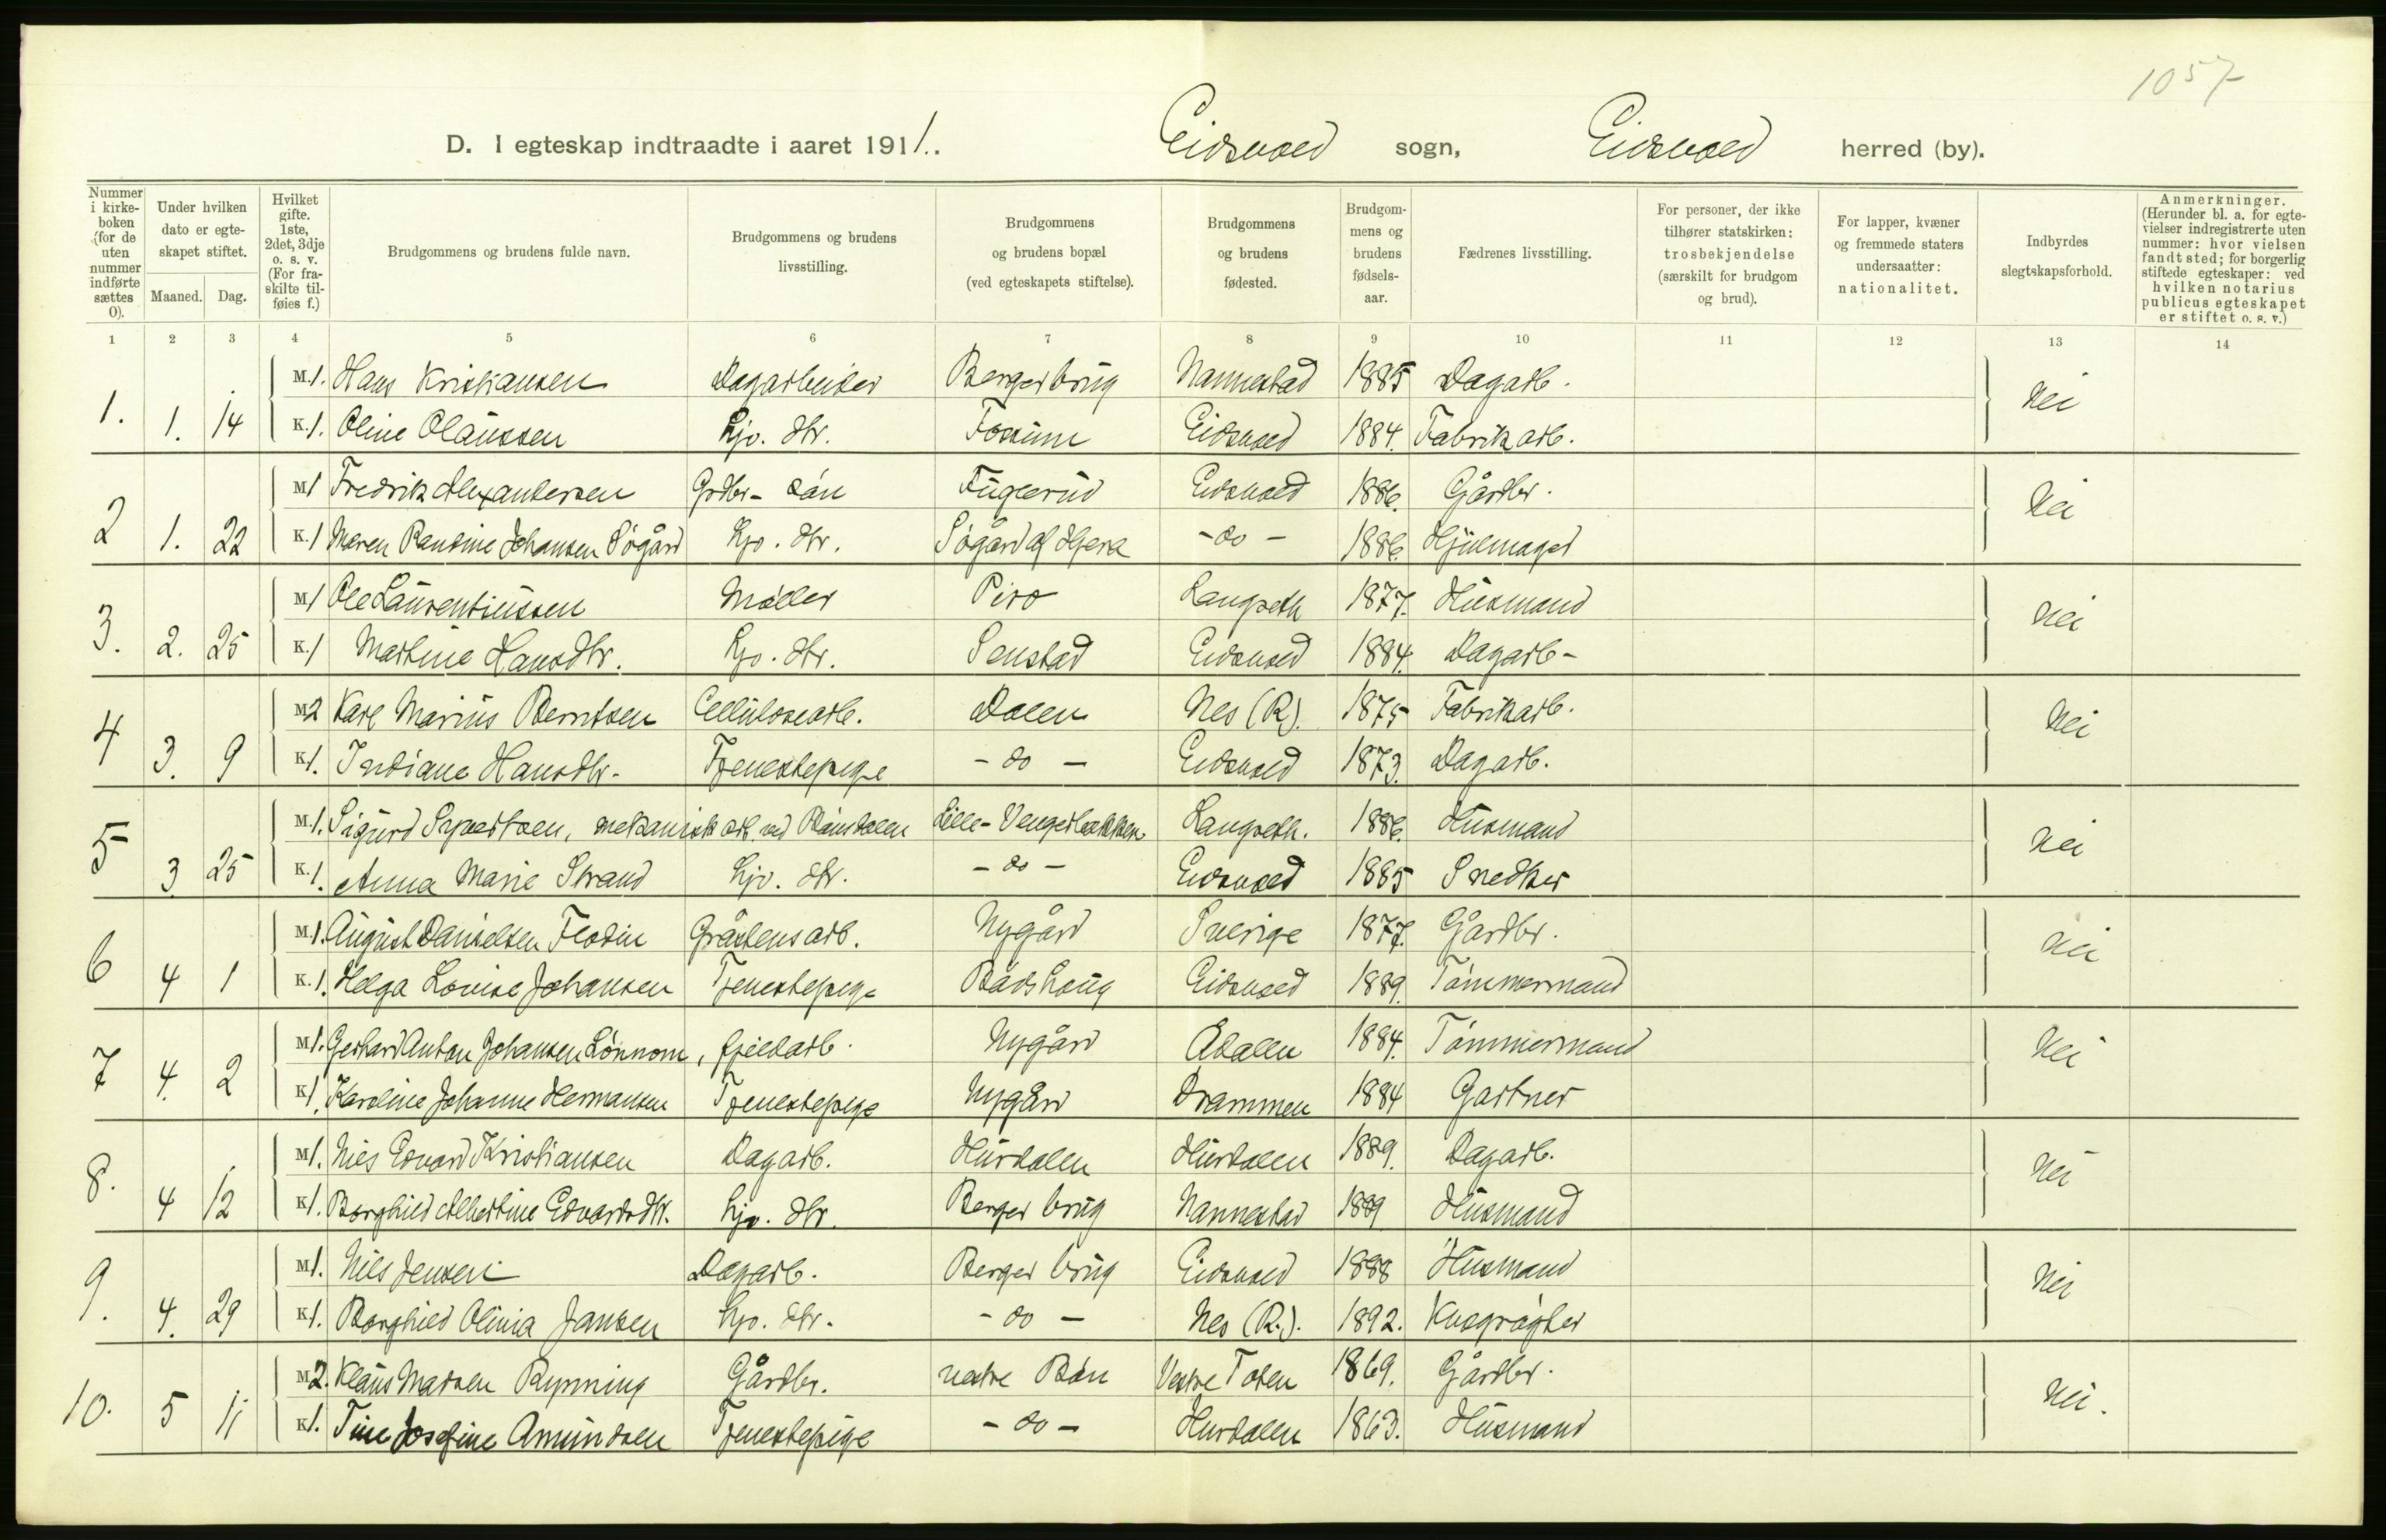 1057
D. I egteskap indtraadte i aaret 1911. Eidsvold sogn, Eidsvold herred (by).
Nummer i kirkeboken (for de uten nummer indførte sættes 0). Under hvilken dato er egteskapet stiftet. Maaned. Dag. Hvilket gifte. 1ste, 2det, 3dje o. s. v. (For fraskilte tilføies f.) Brudgommens og brudens fulde navn. Brudgommens og brudens livsstilling. Brudgommens og brudens bopæl (ved egteskapets stiftelse). Brudgommens og brudens fødested. Brudgommens og brudens fødselsaar. Fædrenes livsstilling. For personer, der ikke tilhører statskirken: trosbekjendelse (særskilt for brudgom og brud). For lapper, kvæner og fremmede staters undersaatter: nationalitet. Indbyrdes slegtskapsforhold. Anmerkninger. (Herunder bl. a. for egtevielser indregistrerte uten nummer: hvor vielsen fandt sted; for borgerlig stiftede egteskaper: ved hvilken notarius publicus egteskapet er stiftet o. s. v.)
1 2 3 4 5 6 7 8 9 10 11 12 13 14
1. 1. 14 M.1. Hans Kristiansen Dagarbeider Berger brug Nannestad 1885 Dagarb. Nei
K.1. Oline Olaussen Hjv. dtr. Fossum Eidsvold 1884. Fabrikarb.
2 1. 22 M1 Fredrik Alexandersen Grdbr. søn Fuglerud Eidsvold 1886. Gårdbr. Nei
K.1 Maren Pauline Johansen Søgård Hjv. dtr. Søgård af Hjera -do- 1886. Hjulmager
3. 2. 25 M1 Ole Laurentiussen Møller Piro Langseth 1877. Husmand Nei
K.1 Martine Hansdtr. Hjv. dtr. Senstad Eidsvold 1884. Dagarb-
4 3. 9 M2 Karl Marius Berntsen Cellulosearb. Dalen Nes (R). 1875 Fabrikarb. Nei
K1. Indiane Hansdtr. Tjenestepige -do- Eidsvold 1873. Dagarb.
5 3 25 M.1. Sigurd Syvertsen, mekanisk arb. ved Bönsdalen Lille-Vengerbækken Langseth. 1886. Husmand Nei
K.1. Anna Marie Strand Hjv. dtr. -do- Eidsvold 1885 Snedker
6 4 1 M.1. August Danielsen Flodin Gråstensarb. Nygård Sverige 1877. Gårdbr. Nei
K.1. Helga Lovise Johansen Tjenestepige Bådshaug Eidsvold 1889. Tømmermand
7 4. 2 M1. Gerhard Anton Johansen Lønnom, fjeldarb. Nygård Ådalen 1884. Tømmermand Nei
K1. Karoline Johanne Hermansen Tjenestepige Nygård Drammen 1884 Gartner
8. 4 12 M1. Nils Edvard Kristiansen Dagarb. Hurdalen Hurdalen 1889. Dagarb. Nei
K1. Borghild Albertine Edvardsdtr. Hjv. dtr. Berger brug Nannestad 1889 Husmand
9. 4. 29 M1. Nils Jensen Dagarb. Berger brug Eidsvold 1888 Husmand Nei
K1. Borghild Olinia Jansen Hjv. dtr. -do- Nes (R.). 1892. Kusgrøgter
10. 5 11 M2. Klaus Madsen Rynning Gårdbr. vestre Bøn Vestre Toten 1869. Gårdbr. Nei.
K1. Tine Josefine Amundsen Tjenestepige -do- Hurdalen 1863. Husmand